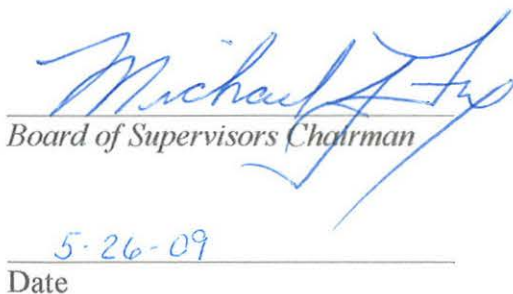 Michael J Fry
Board of Supervisors Chairman
5-26-09
Date